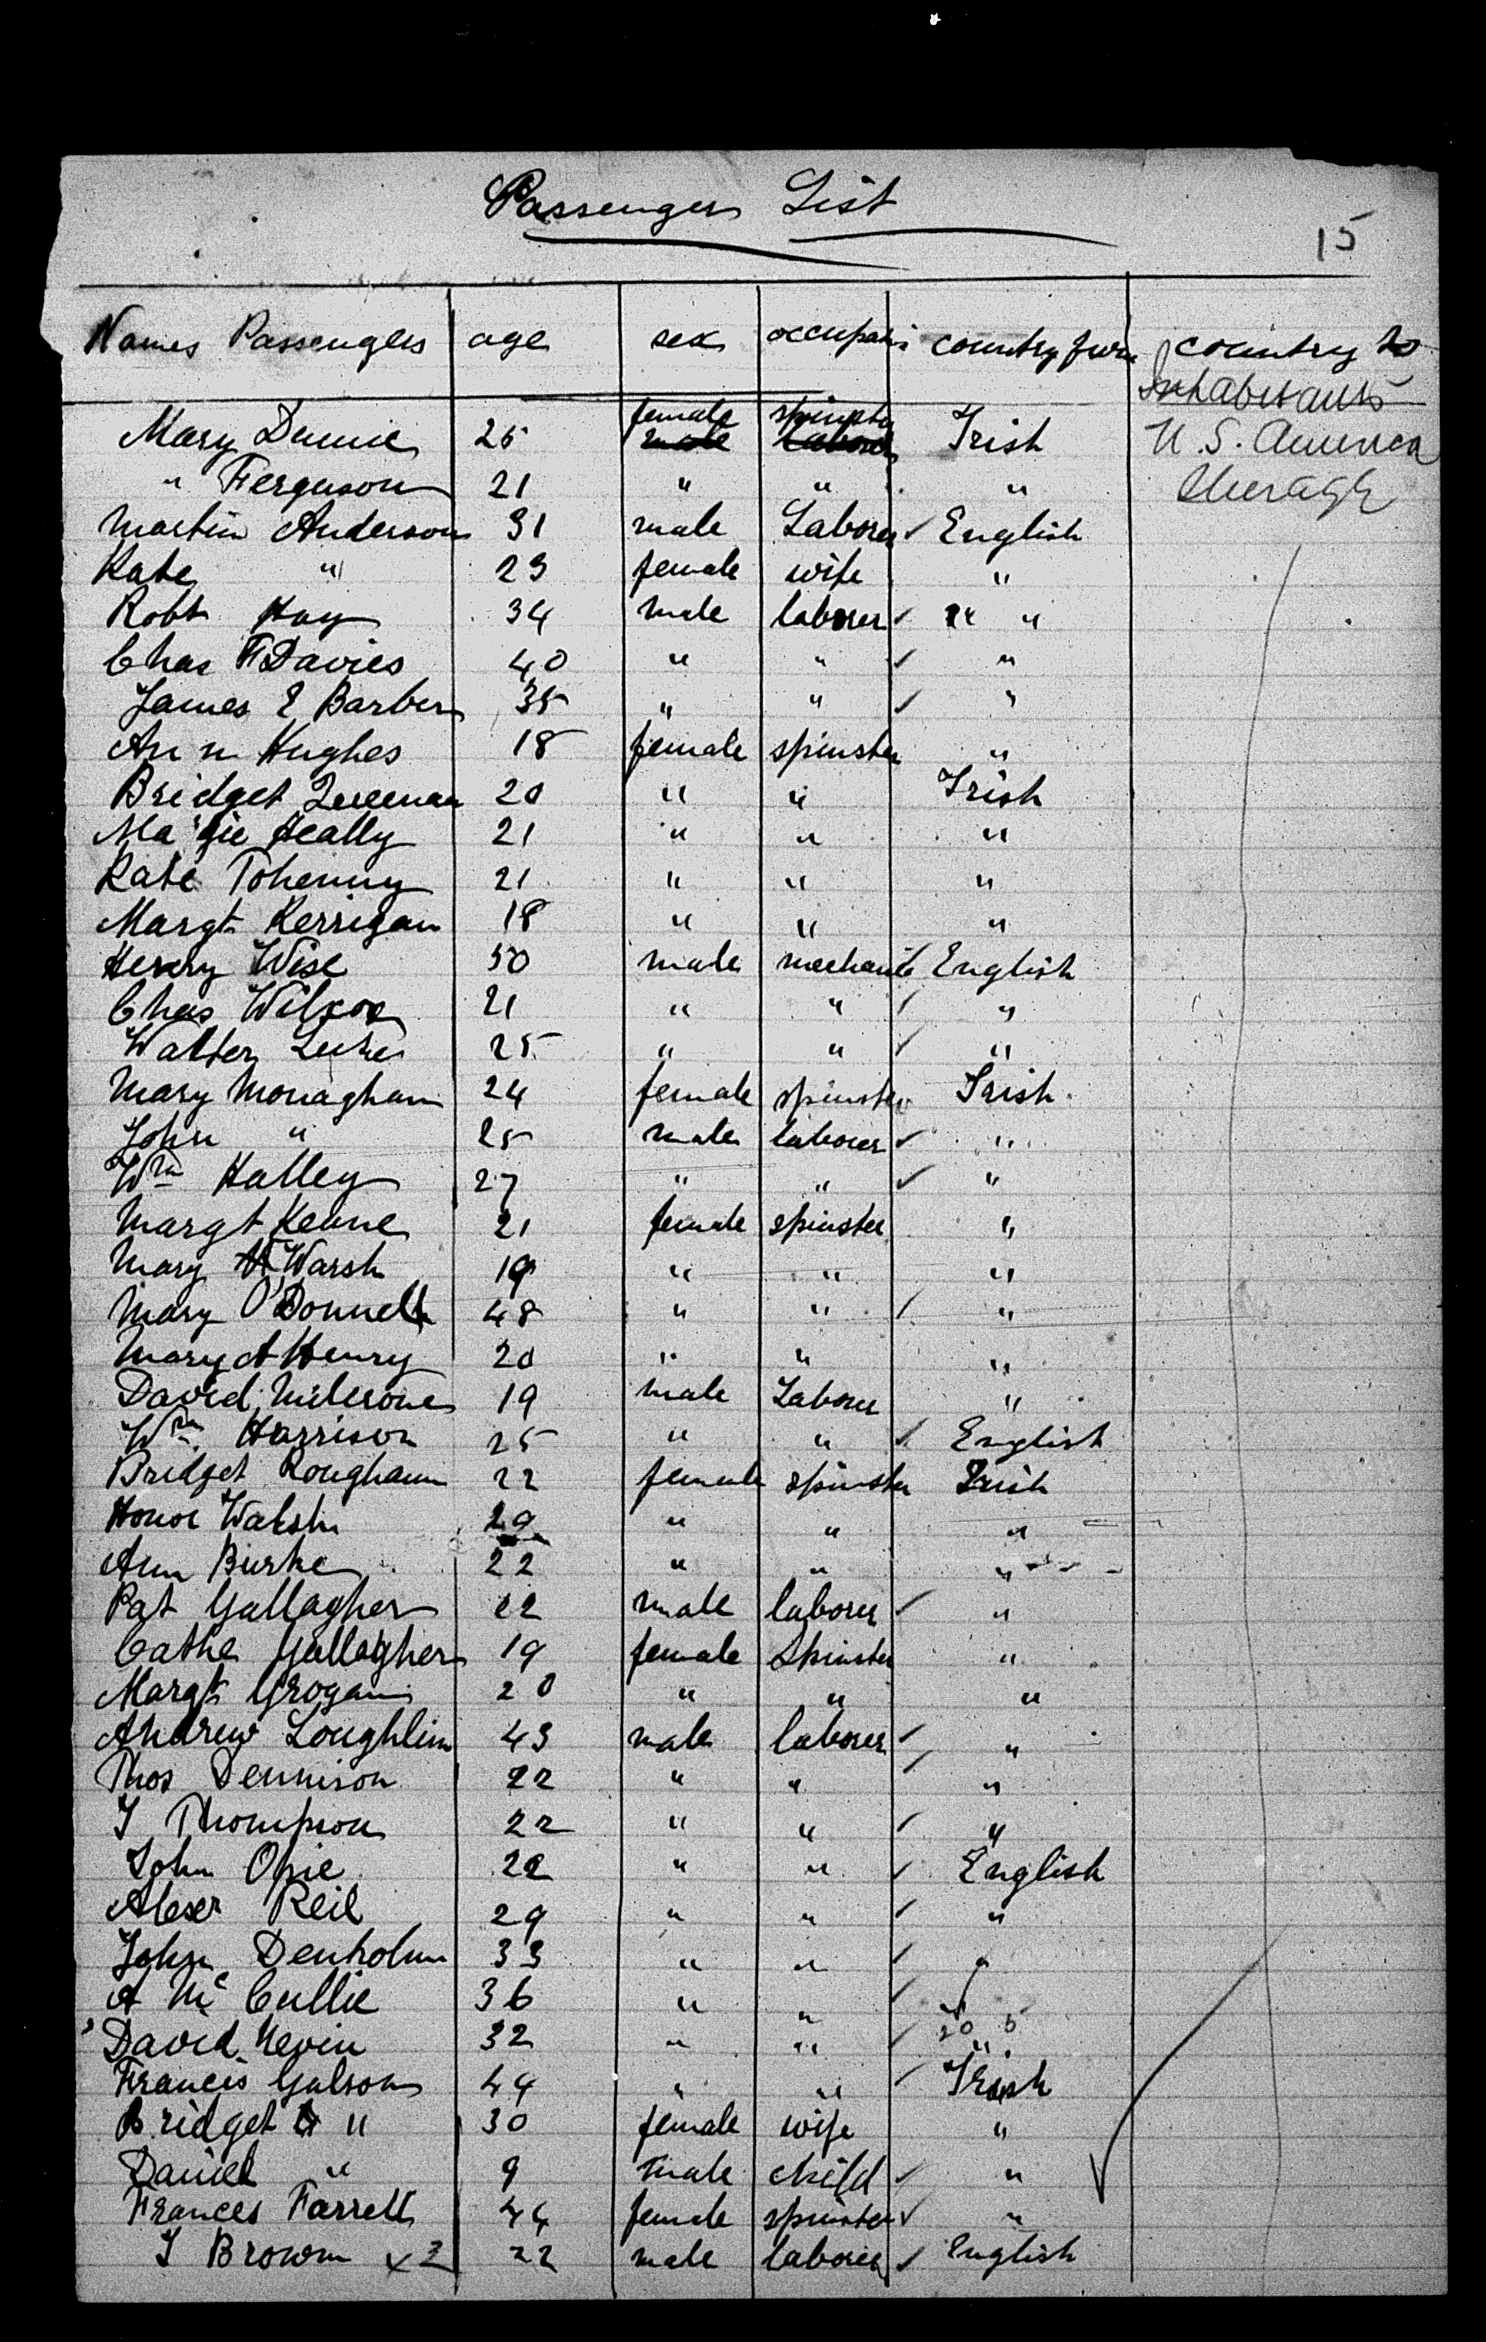 Passengers List
15
Names Passengers age sex occupatn country from country to
Inhabitants
female spinster
Mary Dunne 25 male Laborer Irish U. S. America
" Ferguson 21 " " "
Martin Anderson 31 male Laborer ✓ English
Kate " 23 female wife "
Robt Hay 34 male laborer ✓ " "
Chas F Davies 40 " " ✓ "
James E Barber 35 " " ✓ "
Ann Hughes 18 female spinster "
Bridget 20 " " Irish
Heally 21 " " "
Kate Toherny 21 " " "
Margt Kerrigan 18 " " "
Henry Wise 30 male mechanic ✓ English
Chas Wilcox 21 " " ✓ "
Walter 25 " " ✓ "
Mary Monagham 24 female spinster Irish
John " 25 male laborer ✓ "
Wm Halley 27 " " ✓ "
Margt Keane 21 female spinster "
Mary Warsh 19 " " "
Mary O'Donnell 48 " " ✓ "
Mary A Henry 20 " " "
David 19 male Laborer "
Wm Harrison 25 " " ✓ English
Bridget Roughann 22 female spinster Irish
Honor Walsh 29 " " "
Ann Burke 22 " " "
Pat Gallagher 22 male laborer ✓ "
Cathe Gallagher 19 female Spinster "
Margt Grogan 20 " " "
Andrew Loughlin 43 male laborer ✓ "
Thos Dennison 22 " " ✓ "
J Thompson 22 " " ✓ "
John Opie 22 " " ✓ English
Alexr Reil 29 " " ✓ "
John Denholm 33 " " ✓ "
A Mc Cullie 36 " " ✓ "
20 5
David Nevin 32 " " ✓ "
Francis Galson 44 " " ✓ Irish
Bridget " 30 female wife "
Daniel " 9 male child ✓ "
Frances Farrell 44 female spinster ✓ "
J Brown x 2 22 male laborer ✓ English